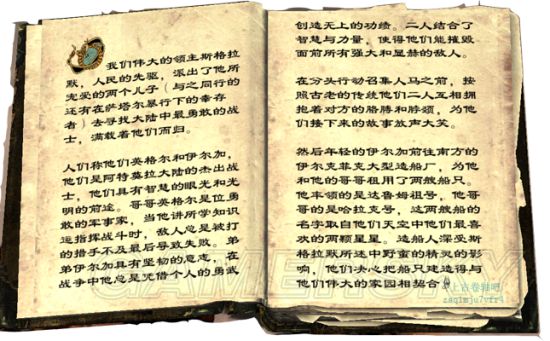 我们伟大的领主斯格拉
默,人民的先驱,派出了他所
宠爱的两个儿子(与之同行的
还有在萨塔尔暴行下的幸存
者)去寻找大陆中最勇敢的战
士,满载着他们而归。
人们称他们英格尔和伊尔加,
他们是阿特莫拉大陆的杰出战
士,他们具有智慧的眼光和光
明的前途。哥哥英格尔是位勇
敢的军事家,当他讲所学知识
运指挥战斗时,敌人总是被打
的措手不及最后导致失败。弟
弟伊尔加具有坚物的意志,在
战争中他总是凭借个人的勇武
创造无上的功绩。二人结合了
智慧与力量,使得他们能摧毁
面前所有强大和显赫的敌人。
在分头行动召集人马之前,按
照古老的传统他们二人互相拥
抱着对方的胳膊和脖颈,为他
们接下来的故事放声大笑。
然后年轻的伊尔加前往南方的
伊克克菲克大型造船厂,为他
和他的哥哥租用了两艘船只。
他率领的是达鲁姆祖号,他哥
哥的是哈拉克号,这两艘船的
名字取自他们天空中他们最喜
欢的两颗星星。造船人深受斯
格拉默所述中野蛮的精灵的影
响,他们决心把船只建造得与
他们伟大的家园相契合
上古卷轴吧
zaq1mju7yfr4
GAMERSKY